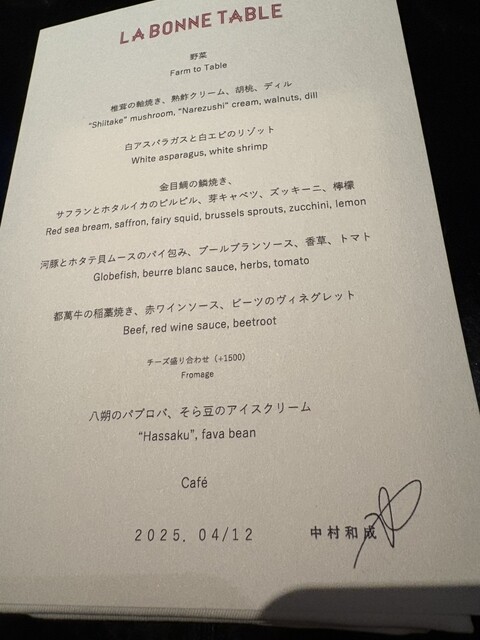 LA BONNE TABLE
野菜
Farm to Table
椎茸の軸焼き、熟鮓クリーム、胡桃、ディル
"Shiitake" mushroom, "Narezushi" cream, walnuts, dill
白アスパラガスと白エビのリゾット
White asparagus, white shrimp
金目鯛の鱗焼き、
サフランとホタルイカのピルピル、芽キャベツ、ズッキーニ、檸檬
Red sea bream, saffron, fairy squid, brussels sprouts, zucchini, lemon
河豚とホタテ貝ムースのパイ包み、ブールブランソース、香草、トマト
Globefish, beurre blanc sauce, herbs, tomato
都萬牛の稲藁焼き、赤ワインソース、ビーツのヴィネグレット
Beef, red wine sauce, beetroot
チーズ盛り合わせ（+1500）
Fromage
八朔のパブロバ、そら豆のアイスクリーム
"Hassaku", fava bean
Café
2025. 04/12
中村和成